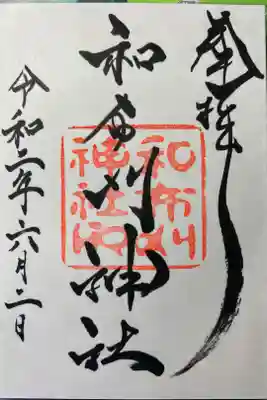 奉拝
和布刈神社
和布刈
神社印
令和二年六月二日